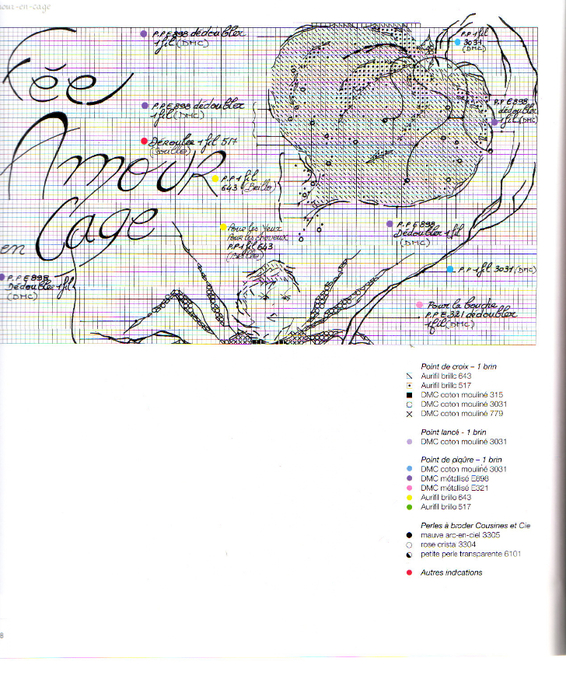 our-en-cage
Fée
Amour
en Cage
P.P E898 dédoubler
1 fil (DMC)
P.P E898 dédoubler
1 fil (DMC)
Dérouler 1 fil 517
P.P 1 fil
643 (Brillo)
Pour les yeux
Pour les cheveux
P.P 1 fil 643
(Brillo)
P.P E898
Dédoubler 1 fil
(DMC)
P.P 1 fil
3031
(DMC)
P.P E898
dédoubler
1 fil (DMC)
P.P E898
Dédoubler 1 fil
(DMC)
P.P 1 fil 3031 (DMC)
Pour la bouche
P.P.E321 dédoubler
1 fil (DMC)
Point de croix – 1 brin
Aurifil brillo 643
Aurifil brillo 517
DMC coton mouliné 315
DMC coton mouliné 3031
DMC coton mouliné 779
Point lancé - 1 brin
DMC coton mouliné 3031
Point de piqûre – 1 brin
DMC coton mouliné 3031
DMC métallisé E898
DMC métallisé E321
Aurifil brillo 643
Aurifil brillo 517
Perles à broder Cousines et Cie
mauve arc-en-ciel 3305
rose cristal 3304
petite perle transparente 6101
Autres indications
8